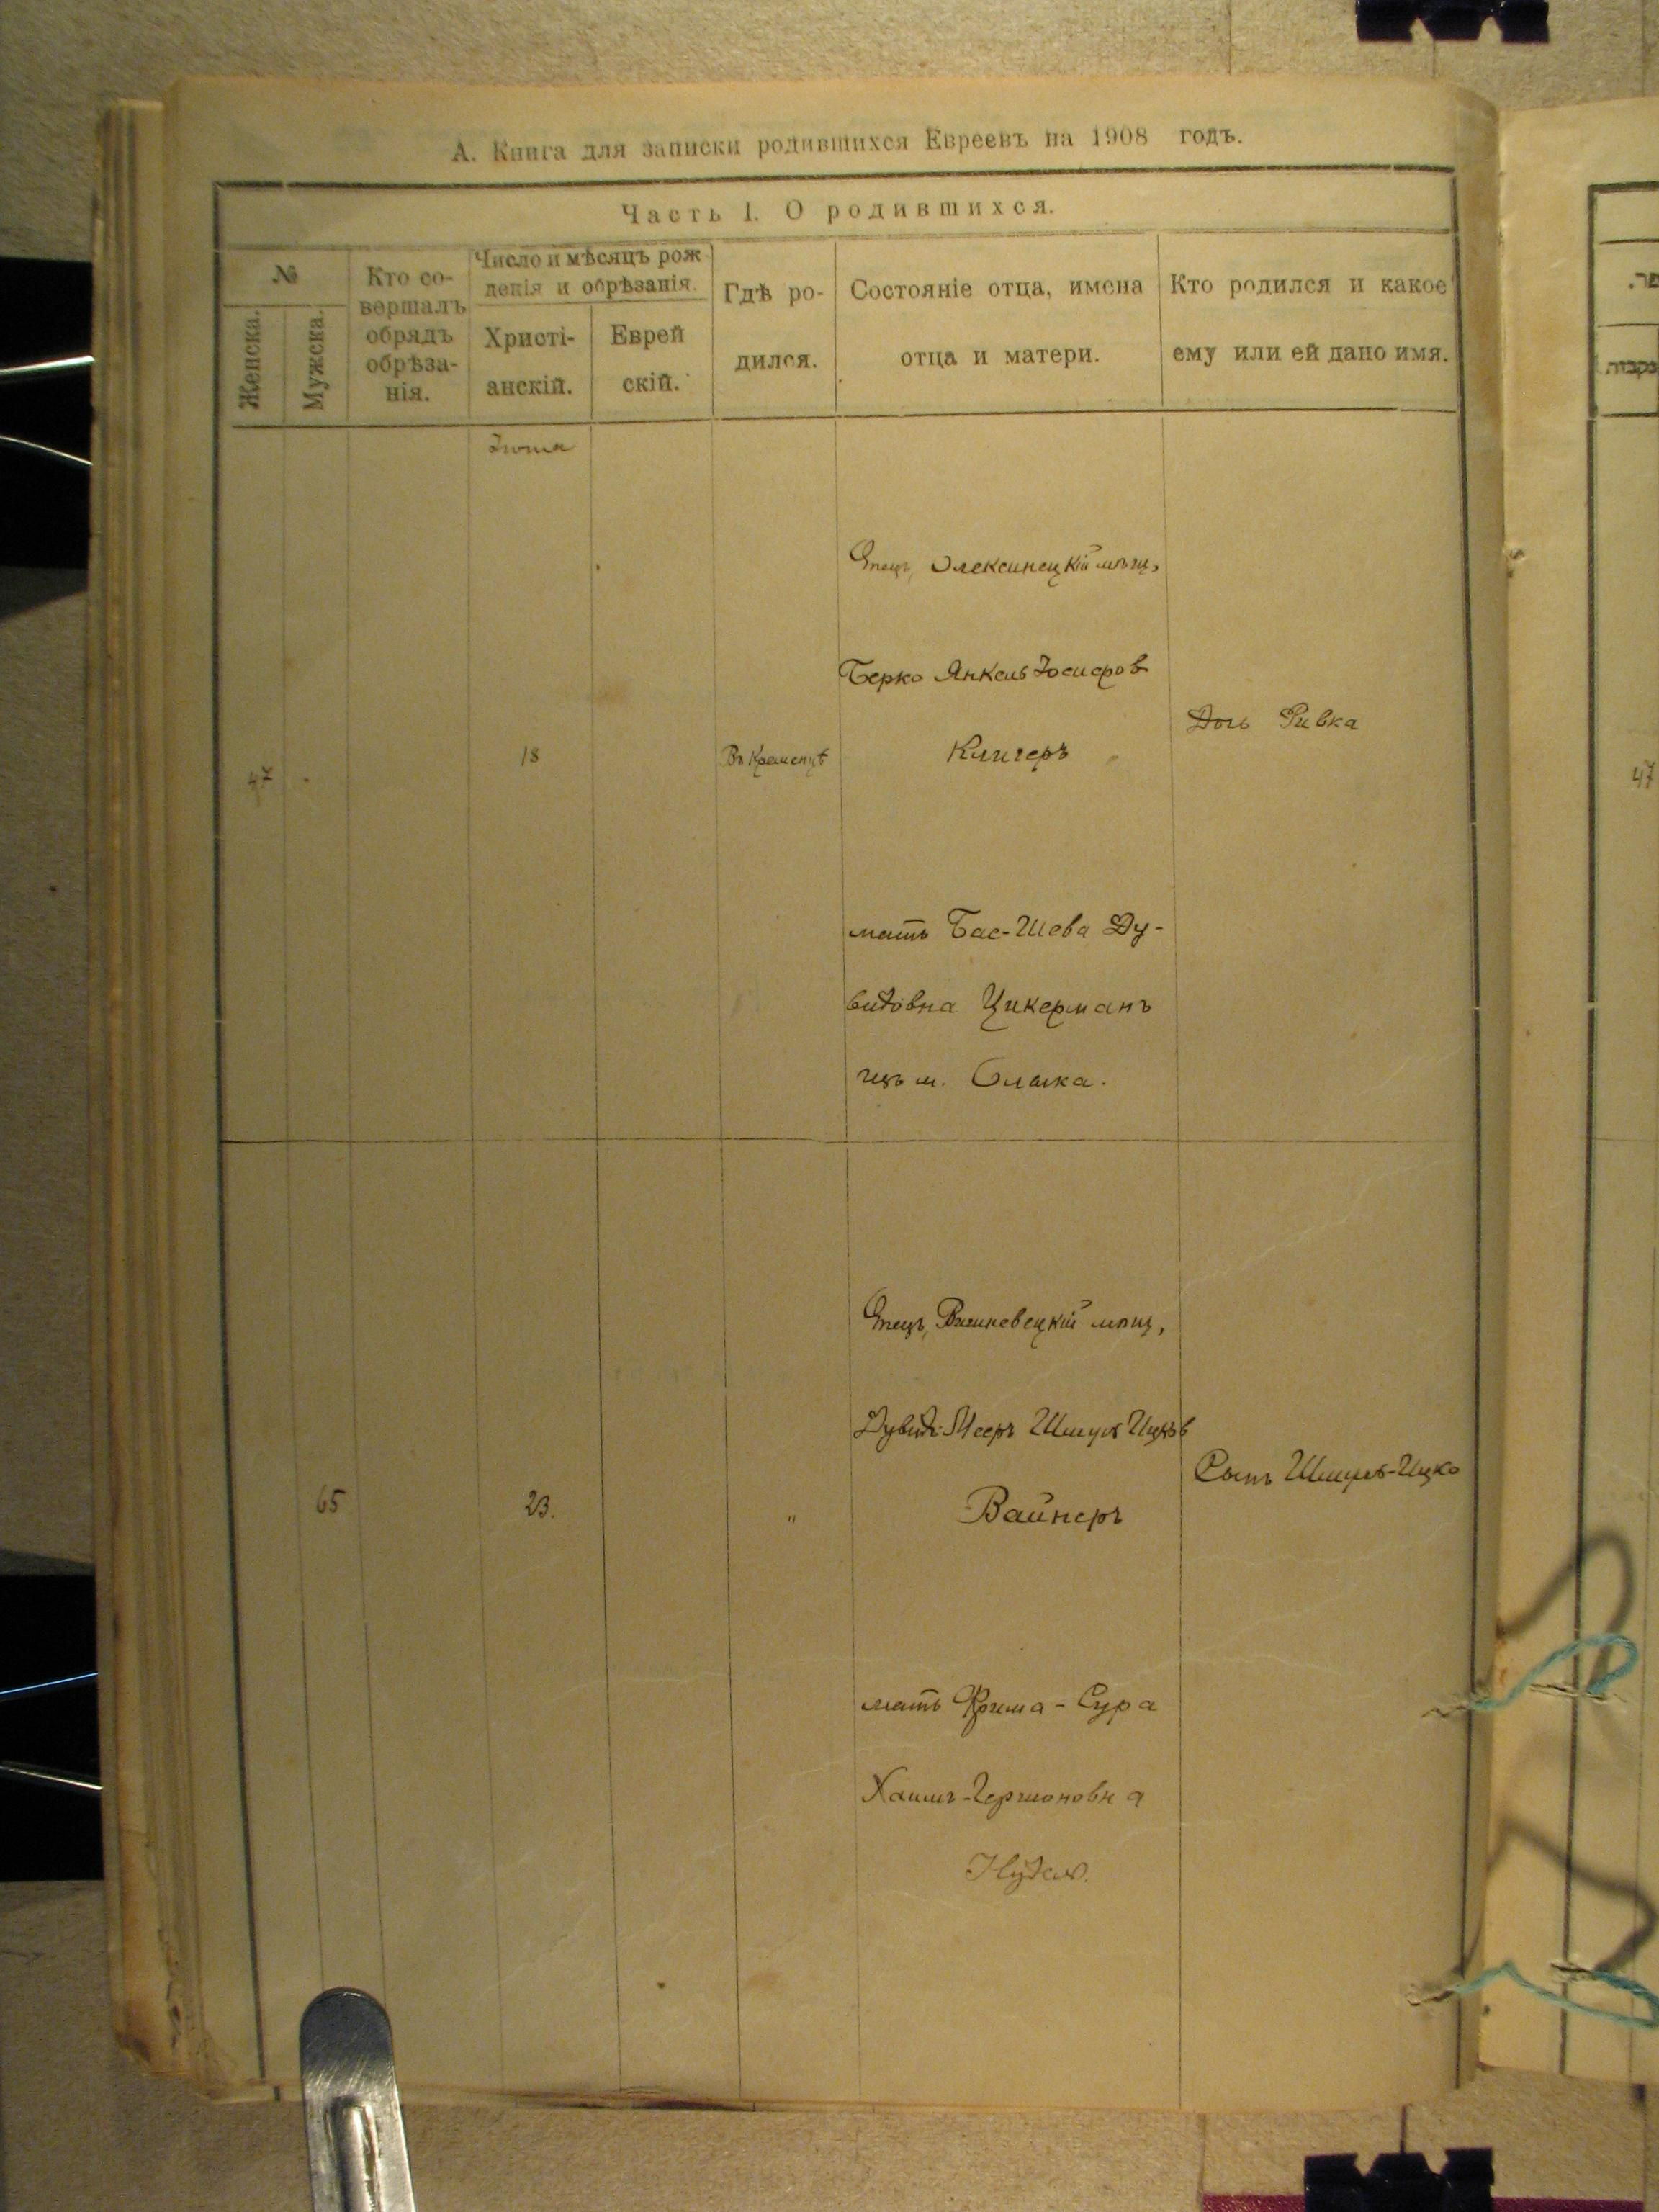 А. Книга для записки родившихся Евреевъ на 1908 годъ.
Часть I. О родившихся.
№
Женска.
Мужска.
Кто со-
вершалъ
обрядъ
обрѣза-
нія.
Число и мѣсяцъ рож
денія и обрѣзанія.
Христі-
анскій.
Еврей
скій.
Гдѣ ро-
дился.
Состояніе отца, имена
отца и матери.
Кто родился и какое
ему или ей дано имя.
47
18
Въ Кременцѣ
Отецъ, Олексинецкій мѣщ,
Берко Янкель Іосифов
Клигеръ
мать Бас-Шева Ду-
видовна Цикерманъ
изъ м.
Дочь Ривка
65
23.
"
Отецъ, Вишневецкій мѣщ,
Дувидъ-Мееръ Шмуль Ицков
Вайнеръ
мать Фрима-Сура
Хаимъ-Гершоновна
Нудель.
Сынъ Шмуль-Ицко
47